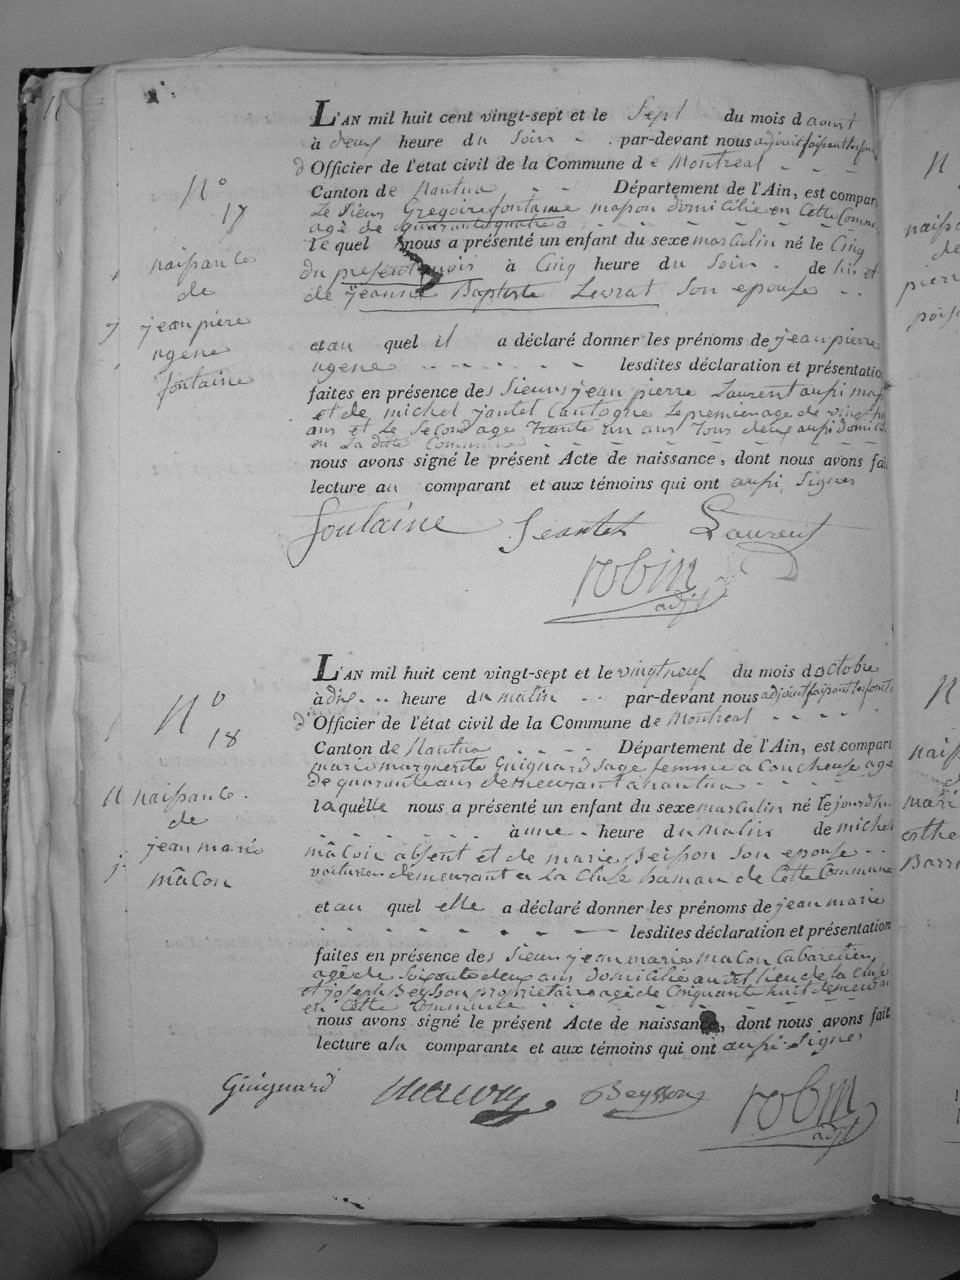 N° 17
naissance
de
jean piere
ugene
fontaine
L'AN mil huit cent vingt-sept et le Sept du mois d aout
à deux heure du Soir par-devant nous adjoint faisant les fon
d'Officier de l'état civil de la Commune de Montreal
Canton de Nantua Département de l'Ain, est compar
Le Sieur Gregoire fontaine masson domicilié en Cette Comm
agé de quarante quatre a
lequel nous a présenté un enfant du sexe masculin né le Cinq
du present mois à Cinq heure du Soir de lui et
de jeanne Baptiste Levrat Son epouse
et au quel il a déclaré donner les prénoms de jean pierre
ugene lesdites déclaration et présentatio
faites en présence des Sieurs jean pierre Laurent aussi mas
et de michel jantet Cultivateur Le premier agé de vingt
ans et Le Second agé Trante un ans Tous deux aussi domici
en La dite Commune
nous avons signé le présent Acte de naissance, dont nous avons fai
lecture au comparant et aux témoins qui ont aussi Signés
fontaine Jeantet Laurent
robin
adjt
N° 18
naissance
de
jean marie
mâcon
L'AN mil huit cent vingt-sept et le vingt neuf du mois d octobre
à dix heure du matin par-devant nous adjoint faisant les foncti
d'Officier de l'état civil de la Commune de Montreal
Canton de Nantua Département de l'Ain, est compart
marie marguerite Guignard Sage femme a Coucheuse agé
de quarante ans demeurant a nantua
laquelle nous a présenté un enfant du sexe masculin né le jourdhui
à une heure du Matin de michel
mâcon absent et de marie Beisson Son epouse
voiturier demeurant a La Cluse hamau de Cette Commune
et au quel elle a déclaré donner les prénoms de jean marie
lesdites déclaration et présentation
faites en présence des Sieurs jean marie macon Cabaretier
agé de Soixante deux ans domicilié au dit lieu de La Cluse
et joseph Beysson propriétaire agé de Cinquante huit demeurant
en Cette Commune
nous avons signé le présent Acte de naissance, dont nous avons fait
lecture a la comparante et aux témoins qui ont aussi Signés
Guignard macon Beysson robin
adjt